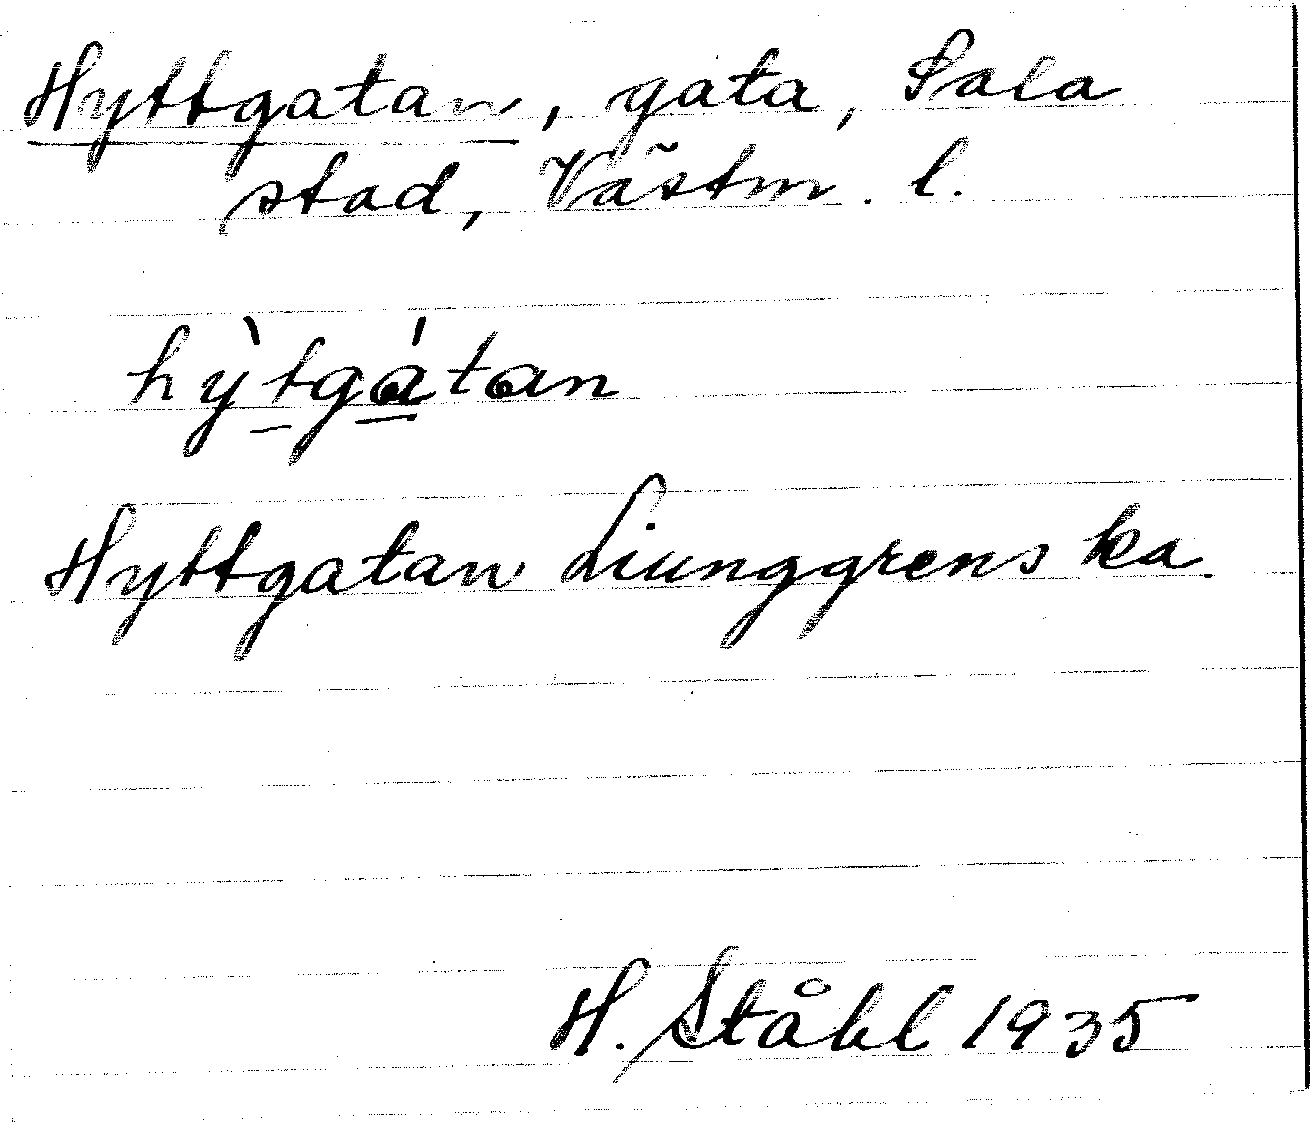 Hyttgatan, gata, Sala
stad, Västm. l.
hy̆̀tgátan
Hyttgatan Liunggrens ka.
H. Ståhl 1935